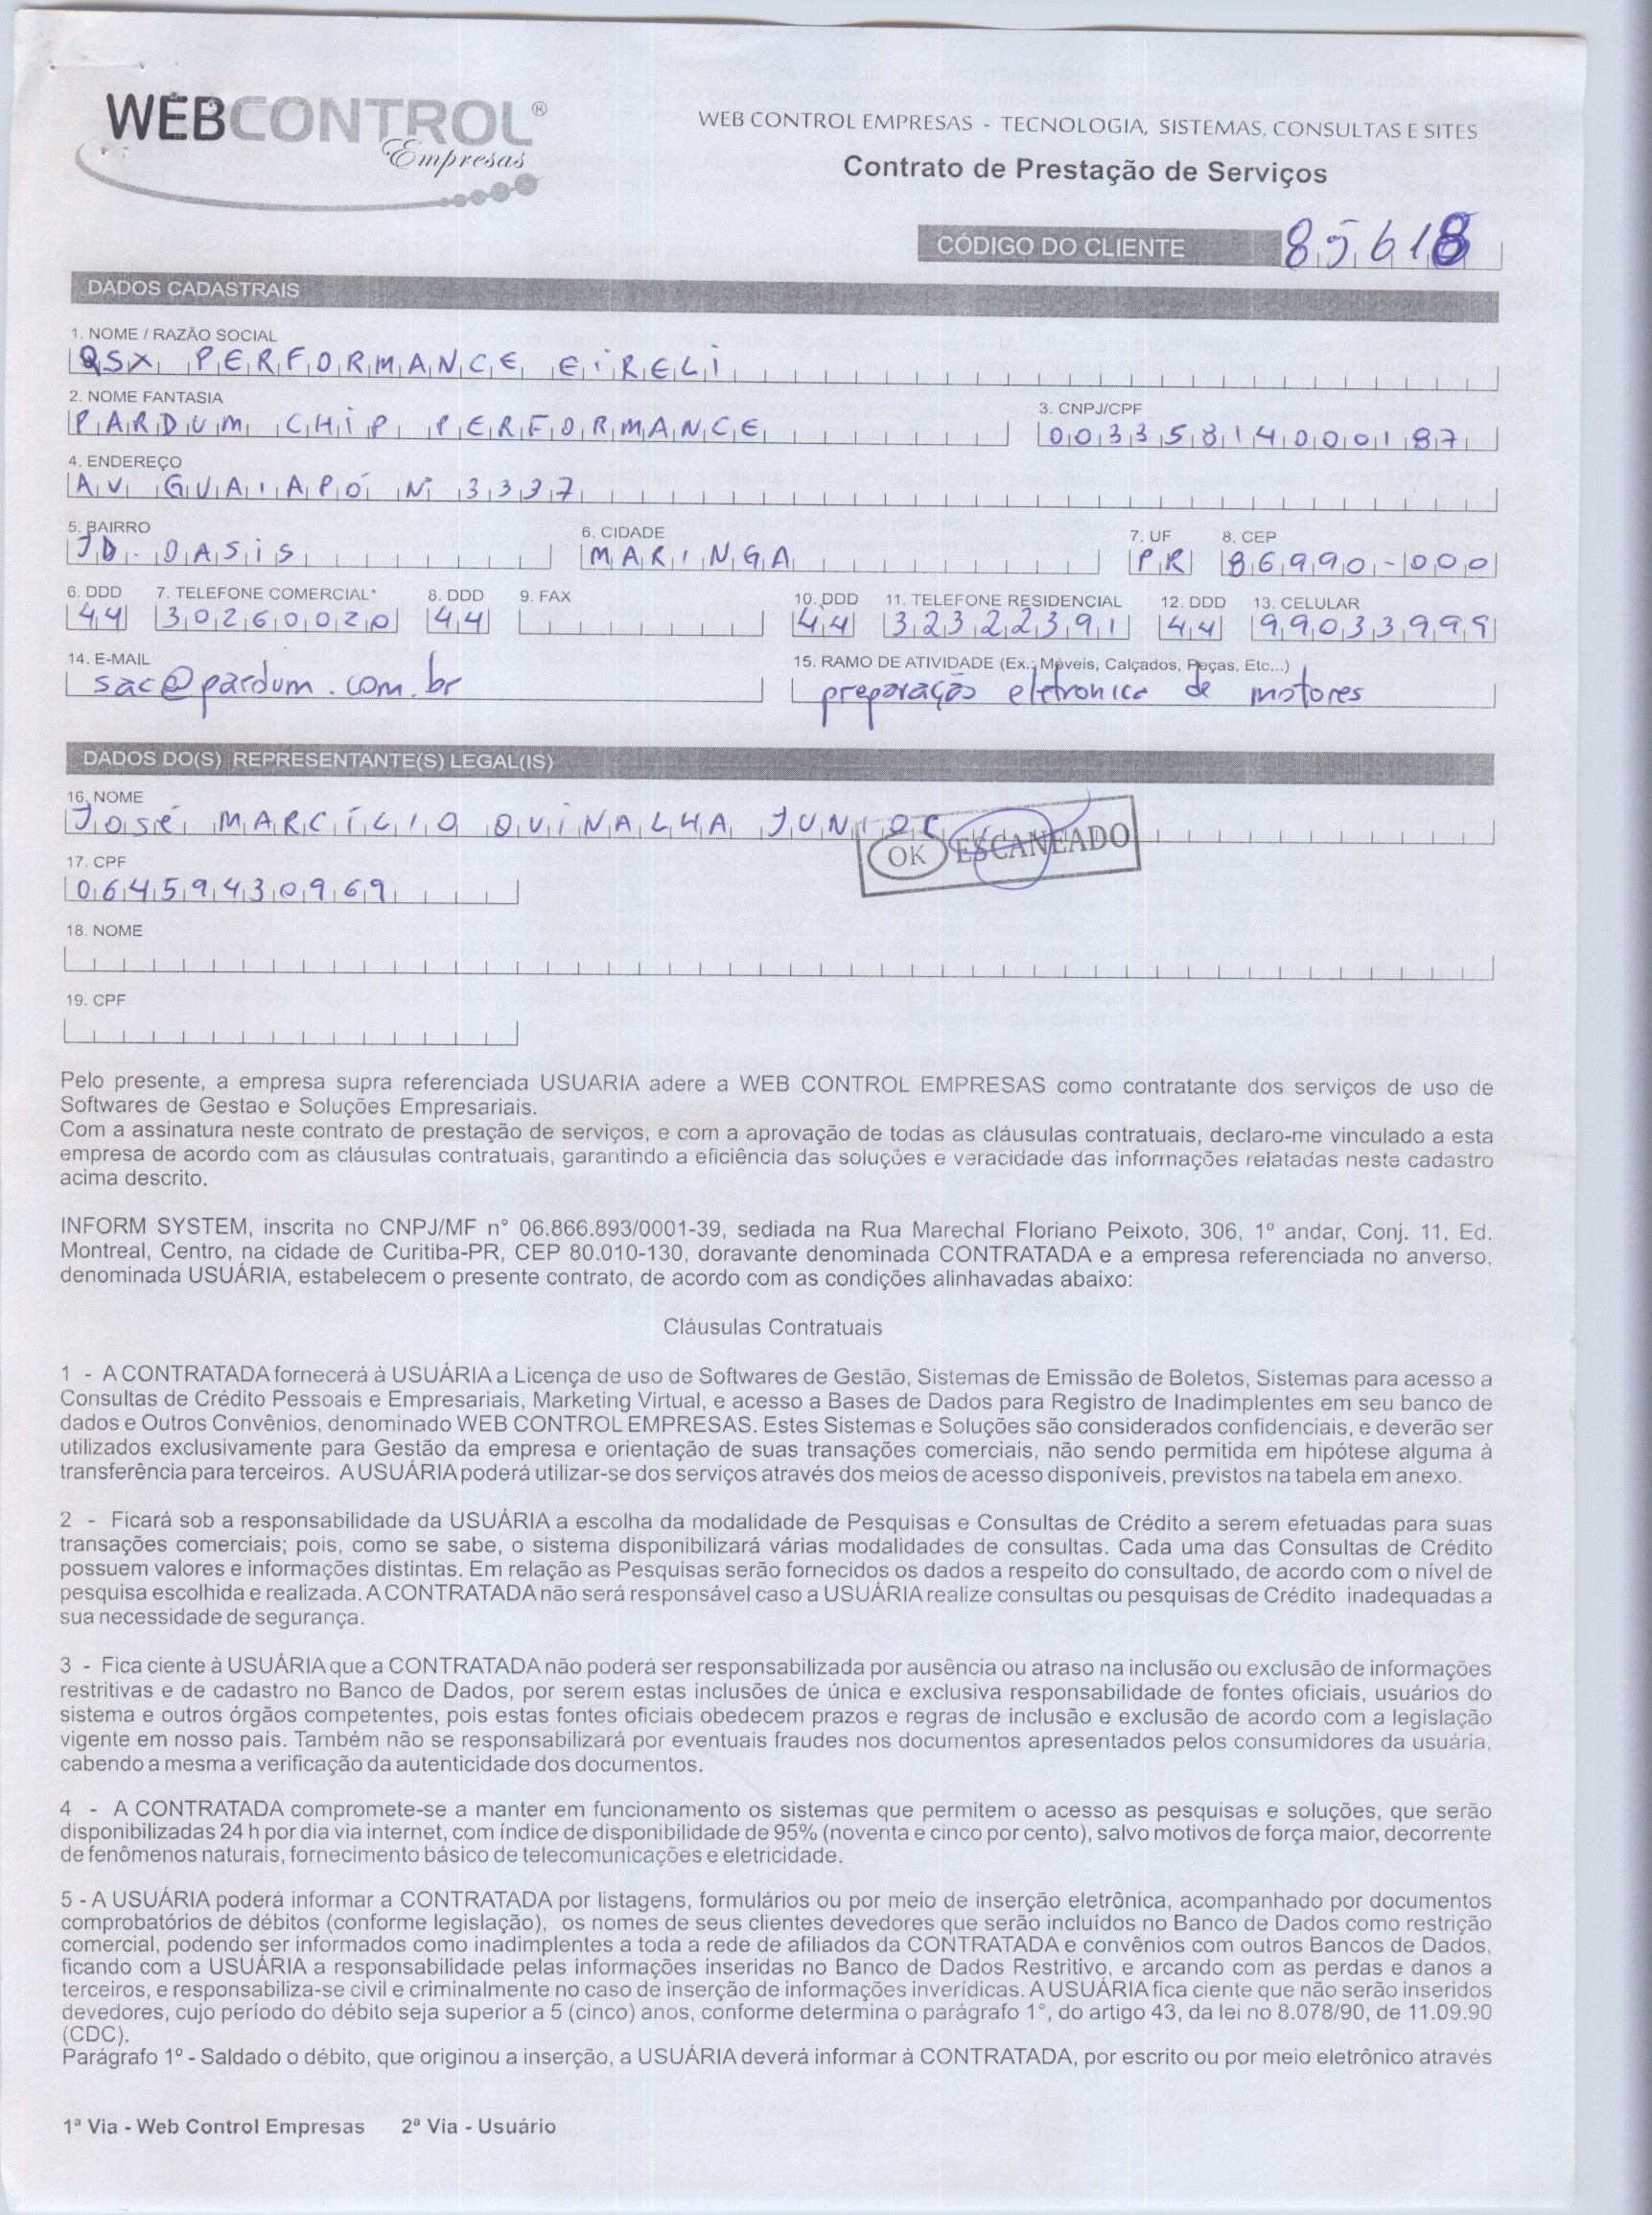 WEBCONTROL®
Empresas
WEB CONTROL EMPRESAS - TECNOLOGIA, SISTEMAS, CONSULTAS E SITES
Contrato de Prestação de Serviços
CÓDIGO DO CLIENTE 85618
DADOS CADASTRAIS
1. NOME / RAZÃO SOCIAL
QSX PERFORMANCE EIRELI
2. NOME FANTASIA
PARDUM CHIP PERFORMANCE
3. CNPJ/CPF
00335814000187
4. ENDEREÇO
AV GUAIAPÓ Nº 3337
5. BAIRRO
JD. OASIS
6. CIDADE
MARINGA
7. UF
PR
8. CEP
86990-000
6. DDD
44
7. TELEFONE COMERCIAL*
30260020
8. DDD
44
9. FAX
10. DDD
44
11. TELEFONE RESIDENCIAL
32322391
12. DDD
44
13. CELULAR
99033999
14. E-MAIL
sac@pardum.com.br
15. RAMO DE ATIVIDADE (Ex.: Móveis, Calçados, Peças, Etc...)
preparação eletronica de motores
DADOS DO(S) REPRESENTANTE(S) LEGAL(IS)
16. NOME
José MARCÍLIO QUINALHA JUNIOR
OK ESCANEADO
17. CPF
06459430969
18. NOME
19. CPF
Pelo presente, a empresa supra referenciada USUARIA adere a WEB CONTROL EMPRESAS como contratante dos serviços de uso de
Softwares de Gestao e Soluções Empresariais.
Com a assinatura neste contrato de prestação de serviços, e com a aprovação de todas as cláusulas contratuais, declaro-me vinculado a esta
empresa de acordo com as cláusulas contratuais, garantindo a eficiência das soluções e veracidade das informações relatadas neste cadastro
acima descrito.
INFORM SYSTEM, inscrita no CNPJ/MF n° 06.866.893/0001-39, sediada na Rua Marechal Floriano Peixoto, 306, 1º andar, Conj. 11, Ed.
Montreal, Centro, na cidade de Curitiba-PR, CEP 80.010-130, doravante denominada CONTRATADA e a empresa referenciada no anverso,
denominada USUÁRIA, estabelecem o presente contrato, de acordo com as condições alinhavadas abaixo:
Cláusulas Contratuais
1 - A CONTRATADA fornecerá à USUÁRIA a Licença de uso de Softwares de Gestão, Sistemas de Emissão de Boletos, Sistemas para acesso a
Consultas de Crédito Pessoais e Empresariais, Marketing Virtual, e acesso a Bases de Dados para Registro de Inadimplentes em seu banco de
dados e Outros Convênios, denominado WEB CONTROL EMPRESAS. Estes Sistemas e Soluções são considerados confidenciais, e deverão ser
utilizados exclusivamente para Gestão da empresa e orientação de suas transações comerciais, não sendo permitida em hipótese alguma à
transferência para terceiros. A USUÁRIA poderá utilizar-se dos serviços através dos meios de acesso disponíveis, previstos na tabela em anexo.
2 - Ficará sob a responsabilidade da USUÁRIA a escolha da modalidade de Pesquisas e Consultas de Crédito a serem efetuadas para suas
transações comerciais; pois, como se sabe, o sistema disponibilizará várias modalidades de consultas. Cada uma das Consultas de Crédito
possuem valores e informações distintas. Em relação as Pesquisas serão fornecidos os dados a respeito do consultado, de acordo com o nível de
pesquisa escolhida e realizada. A CONTRATADA não será responsável caso a USUÁRIA realize consultas ou pesquisas de Crédito inadequadas a
sua necessidade de segurança.
3 - Fica ciente à USUÁRIA que a CONTRATADA não poderá ser responsabilizada por ausência ou atraso na inclusão ou exclusão de informações
restritivas e de cadastro no Banco de Dados, por serem estas inclusões de única e exclusiva responsabilidade de fontes oficiais, usuários do
sistema e outros órgãos competentes, pois estas fontes oficiais obedecem prazos e regras de inclusão e exclusão de acordo com a legislação
vigente em nosso país. Também não se responsabilizará por eventuais fraudes nos documentos apresentados pelos consumidores da usuária,
cabendo a mesma a verificação da autenticidade dos documentos.
4 - A CONTRATADA compromete-se a manter em funcionamento os sistemas que permitem o acesso as pesquisas e soluções, que serão
disponibilizadas 24 h por dia via internet, com índice de disponibilidade de 95% (noventa e cinco por cento), salvo motivos de força maior, decorrente
de fenômenos naturais, fornecimento básico de telecomunicações e eletricidade.
5 - A USUÁRIA poderá informar a CONTRATADA por listagens, formulários ou por meio de inserção eletrônica, acompanhado por documentos
comprobatórios de débitos (conforme legislação), os nomes de seus clientes devedores que serão incluídos no Banco de Dados como restrição
comercial, podendo ser informados como inadimplentes a toda a rede de afiliados da CONTRATADA e convênios com outros Bancos de Dados,
ficando com a USUÁRIA a responsabilidade pelas informações inseridas no Banco de Dados Restritivo, e arcando com as perdas e danos a
terceiros, e responsabiliza-se civil e criminalmente no caso de inserção de informações inverídicas. A USUÁRIA fica ciente que não serão inseridos
devedores, cujo período do débito seja superior a 5 (cinco) anos, conforme determina o parágrafo 1°, do artigo 43, da lei no 8.078/90, de 11.09.90
(CDC).
Parágrafo 1º - Saldado o débito, que originou a inserção, a USUÁRIA deverá informar à CONTRATADA, por escrito ou por meio eletrônico através
1ª Via - Web Control Empresas 2ª Via - Usuário